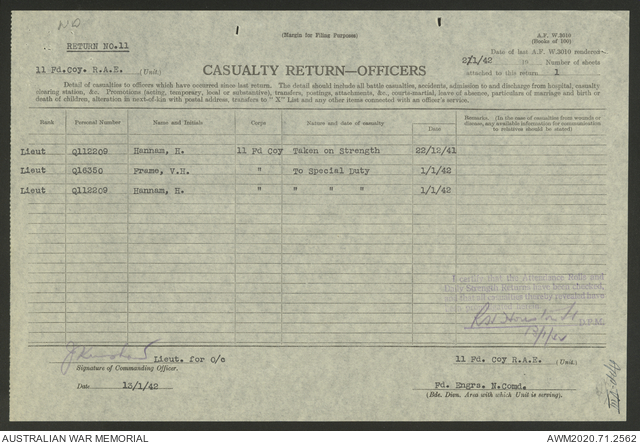 (Margin for Filing Purposes)
A.F. W.3010
(Books of 100)
RETURN NO.11
Date of last A.F. W.3010 rendered
2/1/42 19 Number of sheets
11 Fd.Coy. R.A.E. (Unit) CASUALTY RETURN—OFFICERS attached to this return 1
Detail of casualties to officers which have occurred since last return. The detail should include all battle casualties, accidents, admission to and discharge from hospital, casualty
clearing station, &c. Promotions (acting, temporary, local or substantive), transfers, postings, attachments, &c., courts-martial, leave of absence, particulars of marriage and birth or
death of children, alteration in next-of-kin with postal address, transfers to "X" List and any other items connected with an officer's service.
Rank Personal Number Name and Initials Corps Nature of Casualty Date Remarks. (In the case of casualties from wounds or
disease, any available information for communication
to relatives should be stated)
Lieut Q112209 Hannam, H. 11 Fd Coy Taken on Strength 22/12/41
Lieut Q16350 Frame, V.H. " To Special Duty 1/1/42
Lieut Q112209 Hannam, H. " " " " 1/1/42
I certify that the Attendance Rolls and
Daily Strength Returns have been checked,
and that all casualties thereby revealed have
been
D.P.M.
Lieut. for O/C
Signature of Commanding Officer.
11 Fd. Coy R.A.E. (Unit)
Date 13/1/42
Fd. Engrs. N.Comd.
(Bde. Divn. Area with which Unit is serving).
AUSTRALIAN WAR MEMORIAL
AWM2020.71.2562